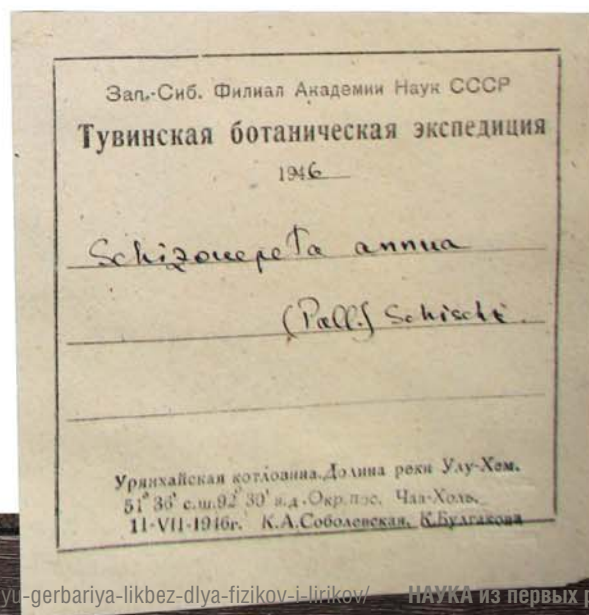 Зап.-Сиб. Филиал Академии Наук СССР
Тувинская ботаническая экспедиция
1946
Schizonepeta annua
(Pall.) Schischk.
Урянхайская котловина. Долина реки Улу-Хем.
51° 36' с.ш. 92° 30' в.д. Окр. пос. Чаа-Холь.
11-VII-1946г. К.А.Соболевская, К.Булгакова
yu-gerbariya-likbez-dlya-fizikov-i-lirikov/ НАУКА из первых р